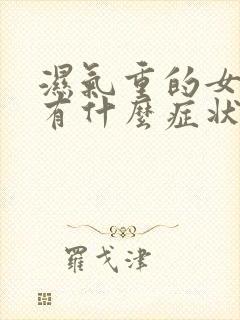 濕氣重的女
有什麼症狀
羅戈津